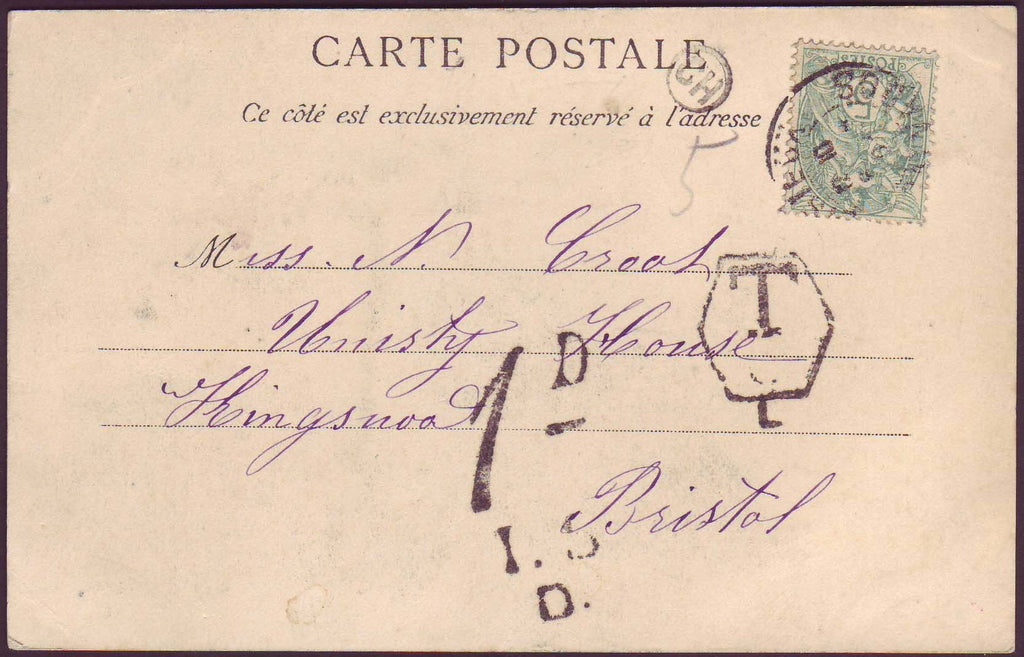 CARTE POSTALE
CH
Ce côté est exclusivement réservé à l'adresse
POSTES
5
Miss. N. Croot
T
House
Kingswood
1 D
Bristol
I.S
D.